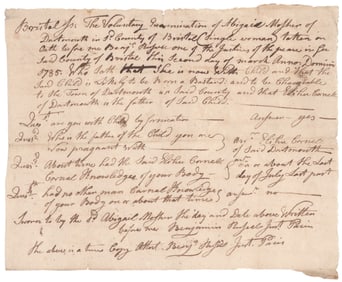 Bristol ss. The Voluntary Examination of Abigail Mosher of
Dartmouth in sd County of Bristol Single woman taken on
Oath before me Benjn Russell one of the Justices of the peace in for
Said County of Bristol this Second day of march Anno Domini
1785. Who Saith that She is now with Child and that the
Said Child is likely to be Born a Bastard and to be Chargeable
to the Town of Dartmouth in Said County and that Elihu Cornel
of Dartmouth is the father of Said Child.
are you with Child by fornication Answer - yes -
Who is the father of the Child you are
Now pregnant with
ansr Elihu Cornel
of Said Dartmouth
About time had the Said Elihu Cornel
Carnal Knowledge of your Body -
ansr on or about the Last
day of July Last past
had no other man Carnal Knowledge
of your Body on or about that time
answr no -
Sworn to by the sd Abigail Mosher the day and Date above Written
before me Benjamin Russell Just. Pacis
the above is a true Copy Attest. Benjn Russell Just. Pacis